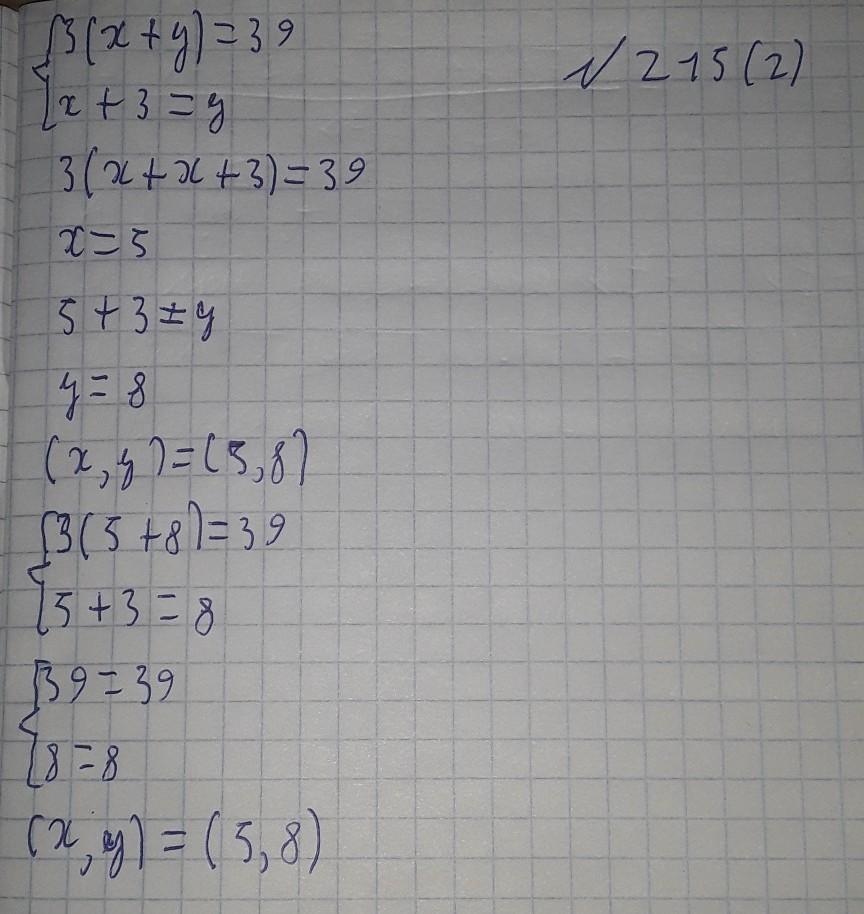 {3(x+y)=39
№ 215(2)
{x+3=y
3(x+x+3)=39
x=5
5+3=y
y=8
(x,y)=(5,8)
{3(5+8)=39
{5+3=8
{39=39
{8=8
(x,y)=(5,8)